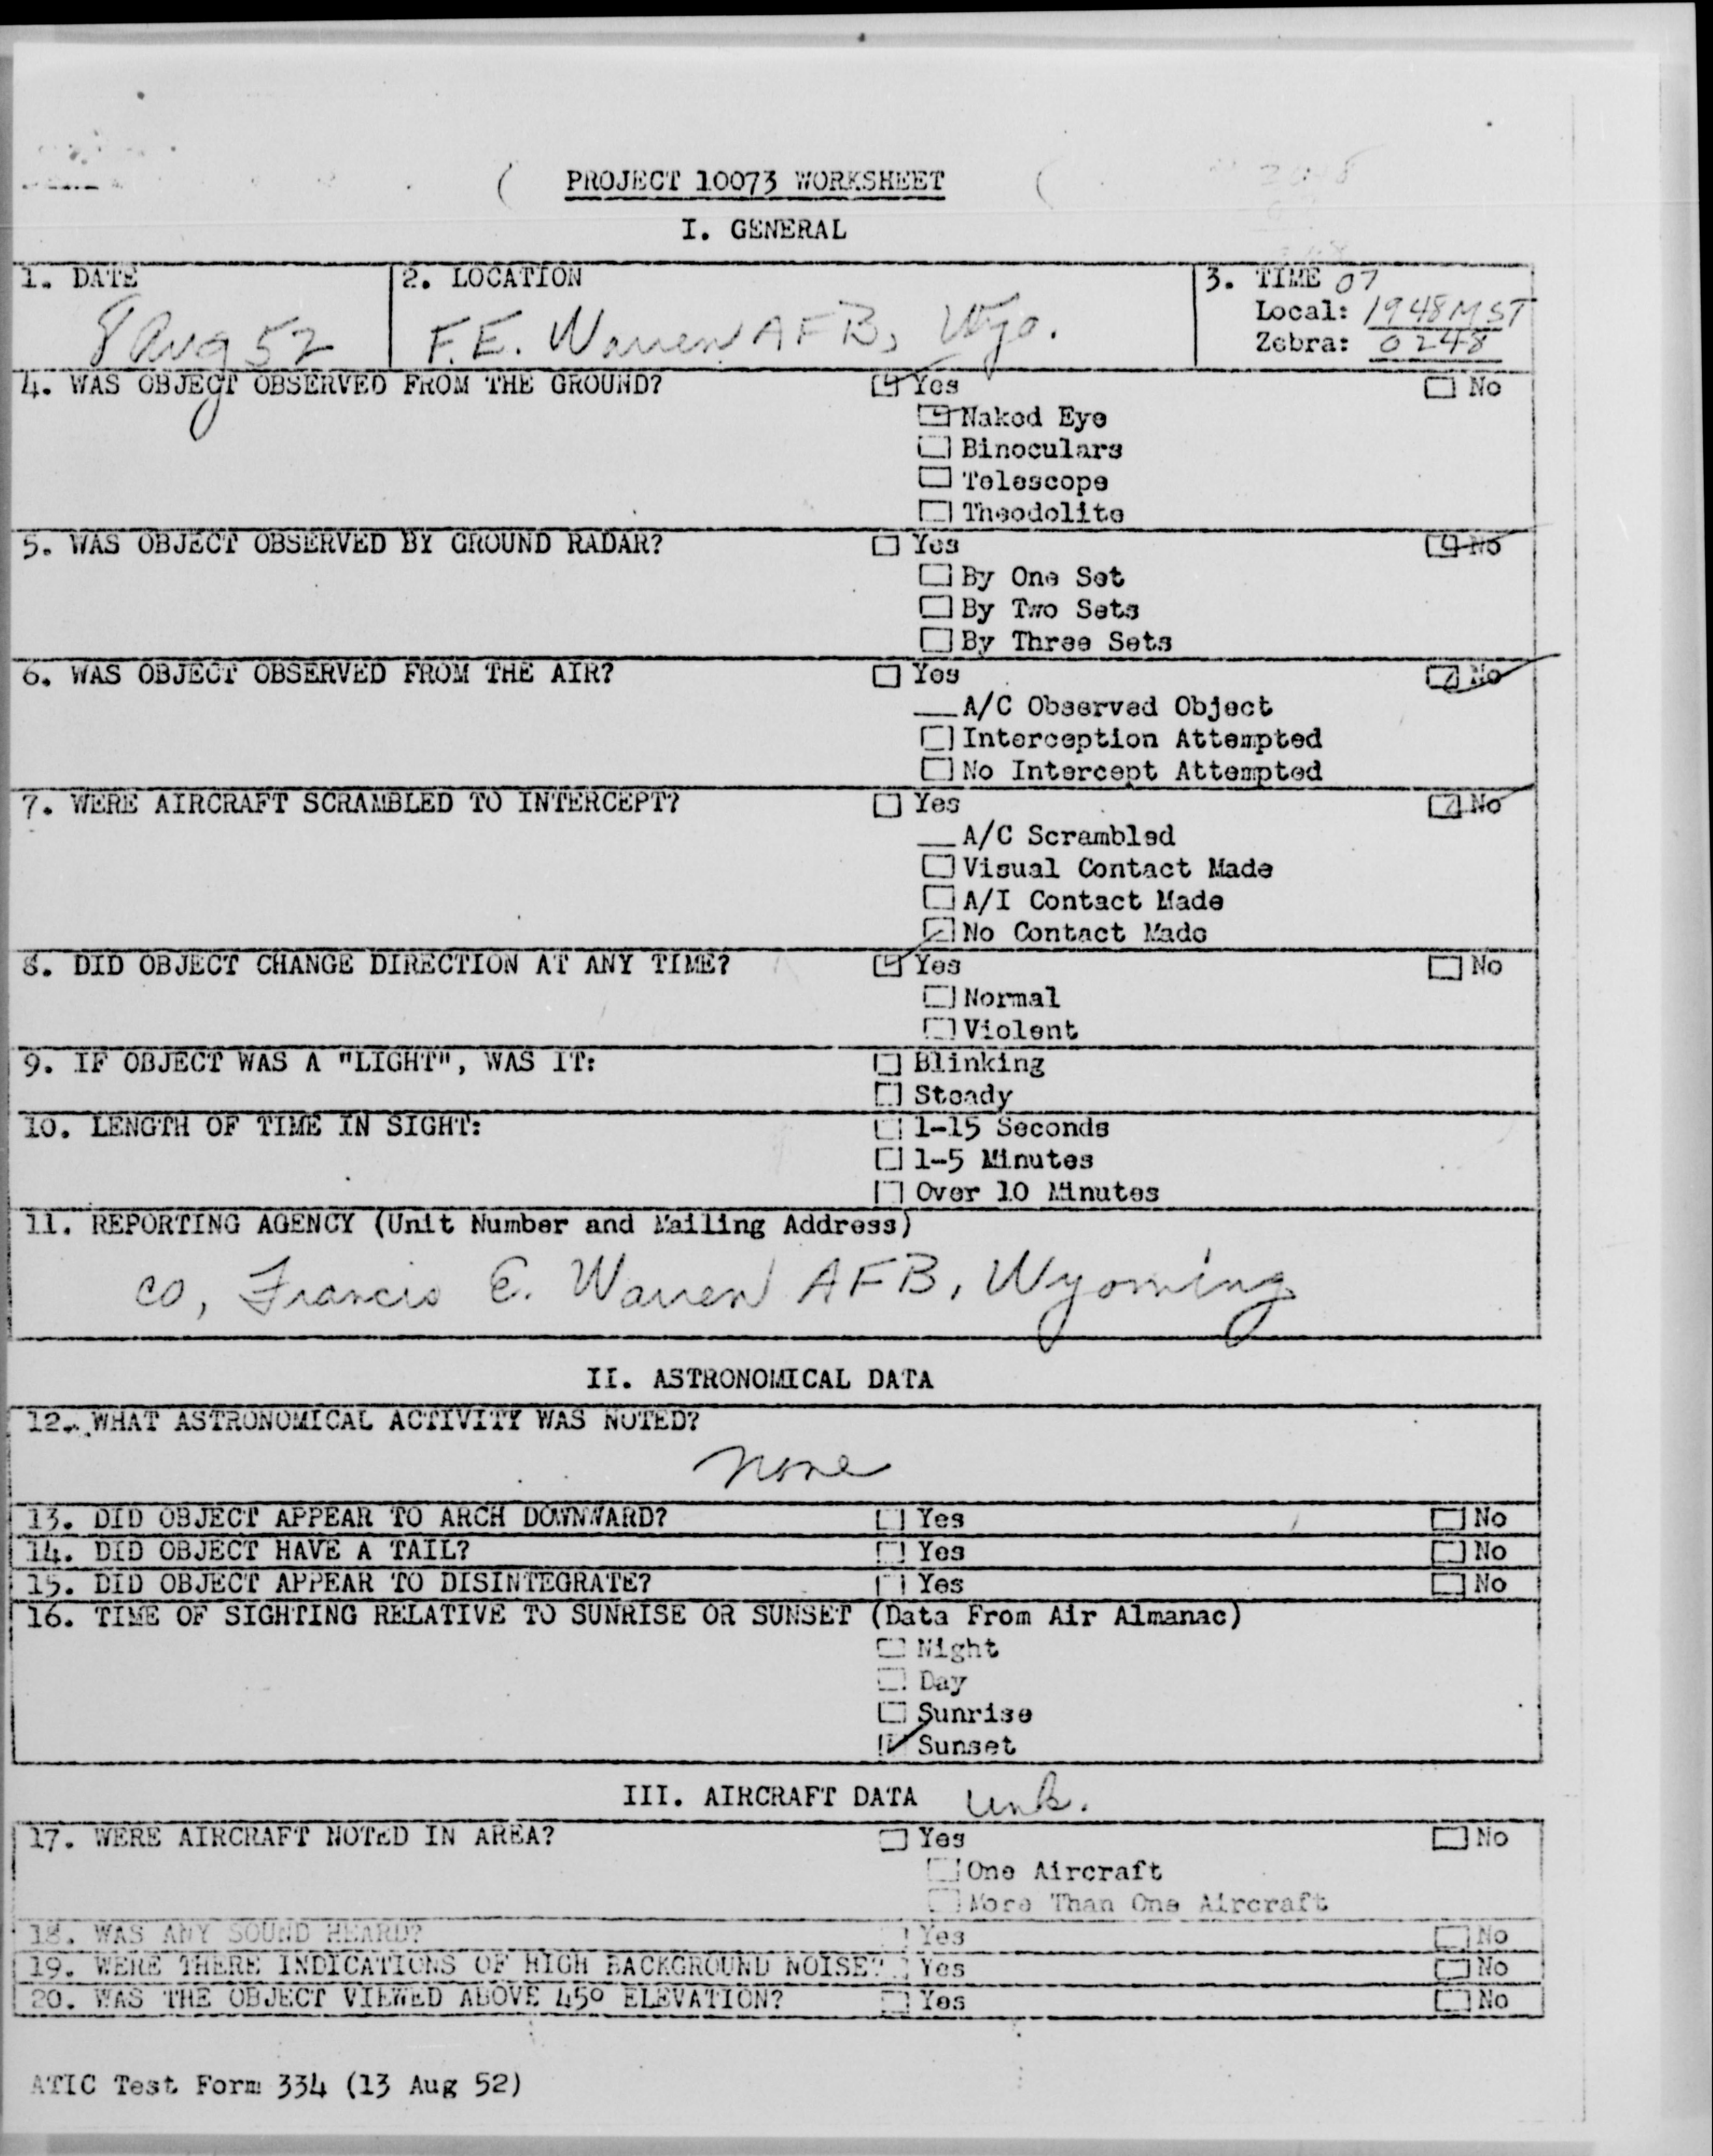 PROJECT 10073 WORKSHEET
I. GENERAL
1. DATE
8 Aug 52
2. LOCATION
F.E. Warren AFB, Wyo.
3. TIME 07
Local: 1948 MST
Zebra: 0248
4. WAS OBJECT OBSERVED FROM THE GROUND? Yes No
Naked Eye
Binoculars
Telescope
Theodolite
5. WAS OBJECT OBSERVED BY GROUND RADAR? Yes No
By One Set
By Two Sets
By Three Sets
6. WAS OBJECT OBSERVED FROM THE AIR? Yes No
A/C Observed Object
Interception Attempted
No Intercept Attempted
7. WERE AIRCRAFT SCRAMBLED TO INTERCEPT? Yes No
A/C Scrambled
Visual Contact Made
A/I Contact Made
No Contact Made
8. DID OBJECT CHANGE DIRECTION AT ANY TIME? Yes No
Normal
Violent
9. IF OBJECT WAS A "LIGHT", WAS IT: Blinking
Steady
10. LENGTH OF TIME IN SIGHT: 1-15 Seconds
1-5 Minutes
Over 10 Minutes
11. REPORTING AGENCY (Unit Number and Mailing Address)
CO, Francis E. Warren AFB, Wyoming
II. ASTRONOMICAL DATA
12. WHAT ASTRONOMICAL ACTIVITY WAS NOTED?
none
13. DID OBJECT APPEAR TO ARCH DOWNWARD? Yes No
14. DID OBJECT HAVE A TAIL? Yes No
15. DID OBJECT APPEAR TO DISINTEGRATE? Yes No
16. TIME OF SIGHTING RELATIVE TO SUNRISE OR SUNSET (Data From Air Almanac)
Night
Day
Sunrise
Sunset
III. AIRCRAFT DATA unk.
17. WERE AIRCRAFT NOTED IN AREA? Yes No
One Aircraft
More Than One Aircraft
18. WAS ANY SOUND HEARD? Yes No
19. WERE THERE INDICATIONS OF HIGH BACKGROUND NOISE? Yes No
20. WAS THE OBJECT VIEWED ABOVE 45° ELEVATION? Yes No
ATIC Test Form 334 (13 Aug 52)